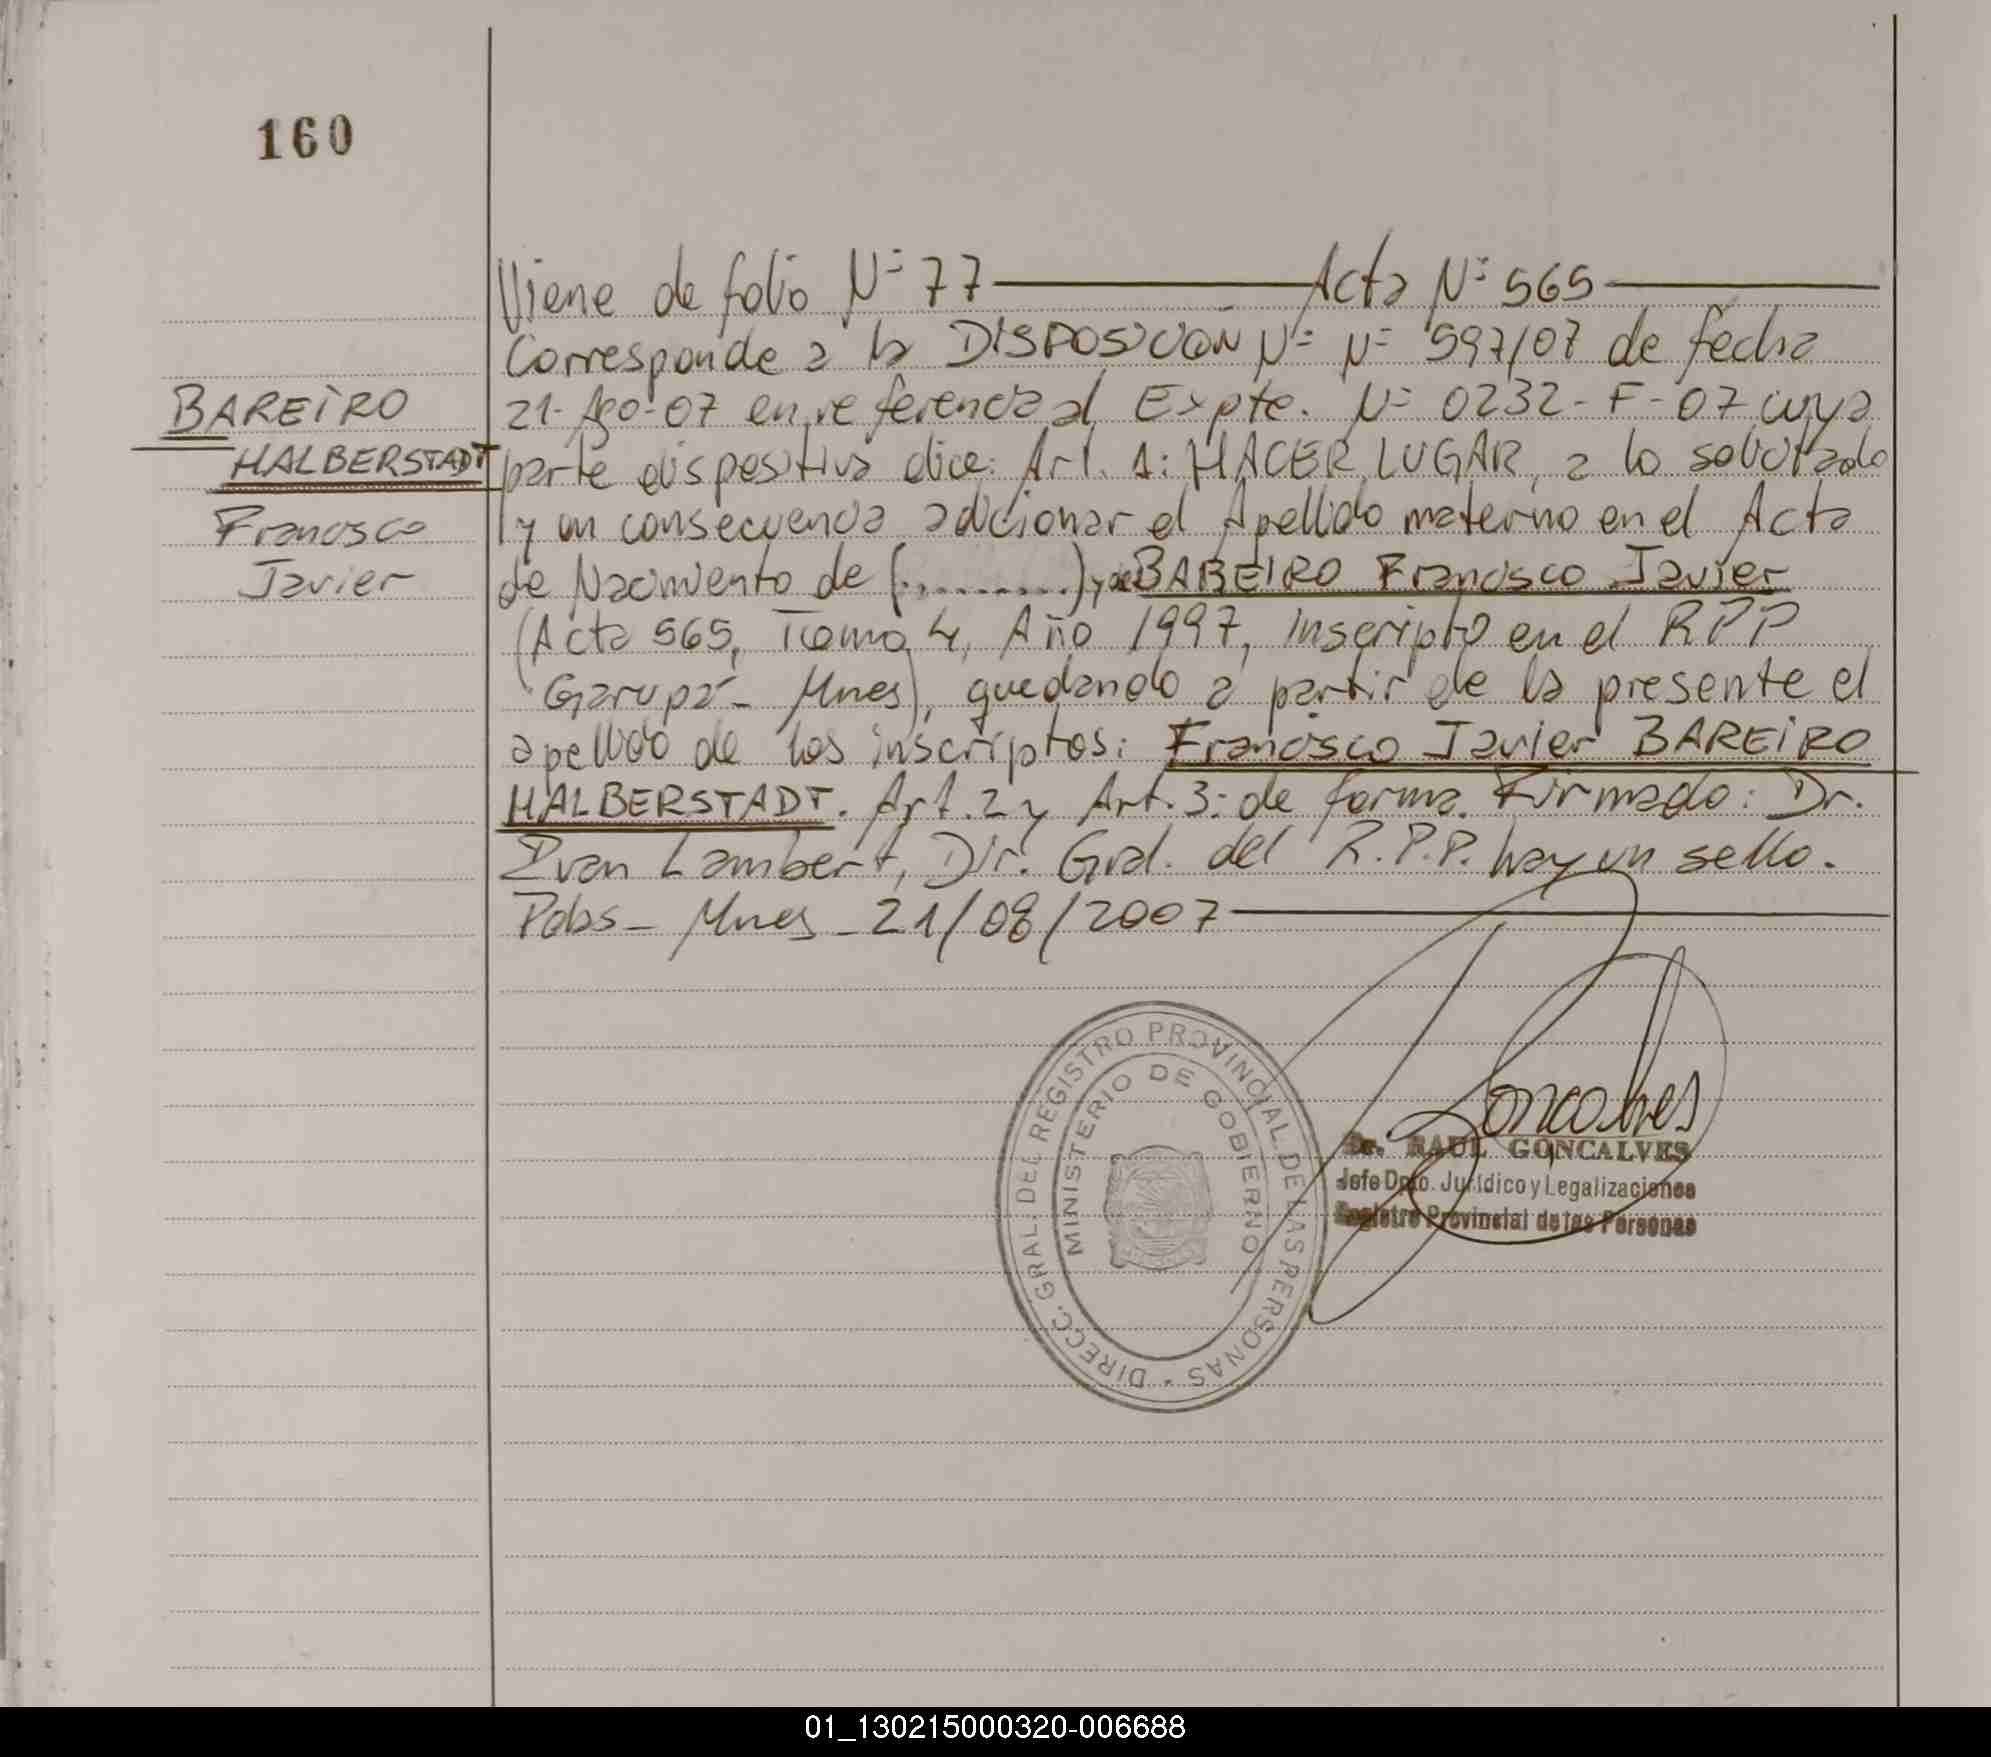 160
Viene de folio Nº 77 Acta Nº 565
Corresponde a la DISPOSICIÓN Nº Nº 597/07 de fecha
21-Ago-07 en referencia al Expte. Nº 0232-F-07 cuya
parte dispositiva dice: Art. 1: HACER LUGAR, a lo solicitado
y en consecuencia adicionar el Apellido materno en el Acta
de Nacimiento de (..........) y de BAREIRO Francisco Javier
(Acta 565, Tomo 4, Año 1997, inscripto en el RPP
Garupá- Mnes), quedando a partir de la presente el
apellido de los inscriptos: Francisco Javier BAREIRO
HALBERSTADT. Art. 2 y Art. 3: de forma. Firmado: Dr.
Ivan Lambert, Dir. Gral. del R.P.P. hay un sello.
Pdas- Mnes- 21/08/2007
BAREIRO
HALBERSTADT
Francisco
Javier
DIRECC. GRAL. DEL REGISTRO PROVINCIAL DE LAS PERSONAS
MINISTERIO DE GOBIERNO
Goncalves
Dr. RAUL GONCALVES
Jefe Dpto. Jurídico y Legalizaciones
Registro Provincial de las Personas
01_130215000320-006688